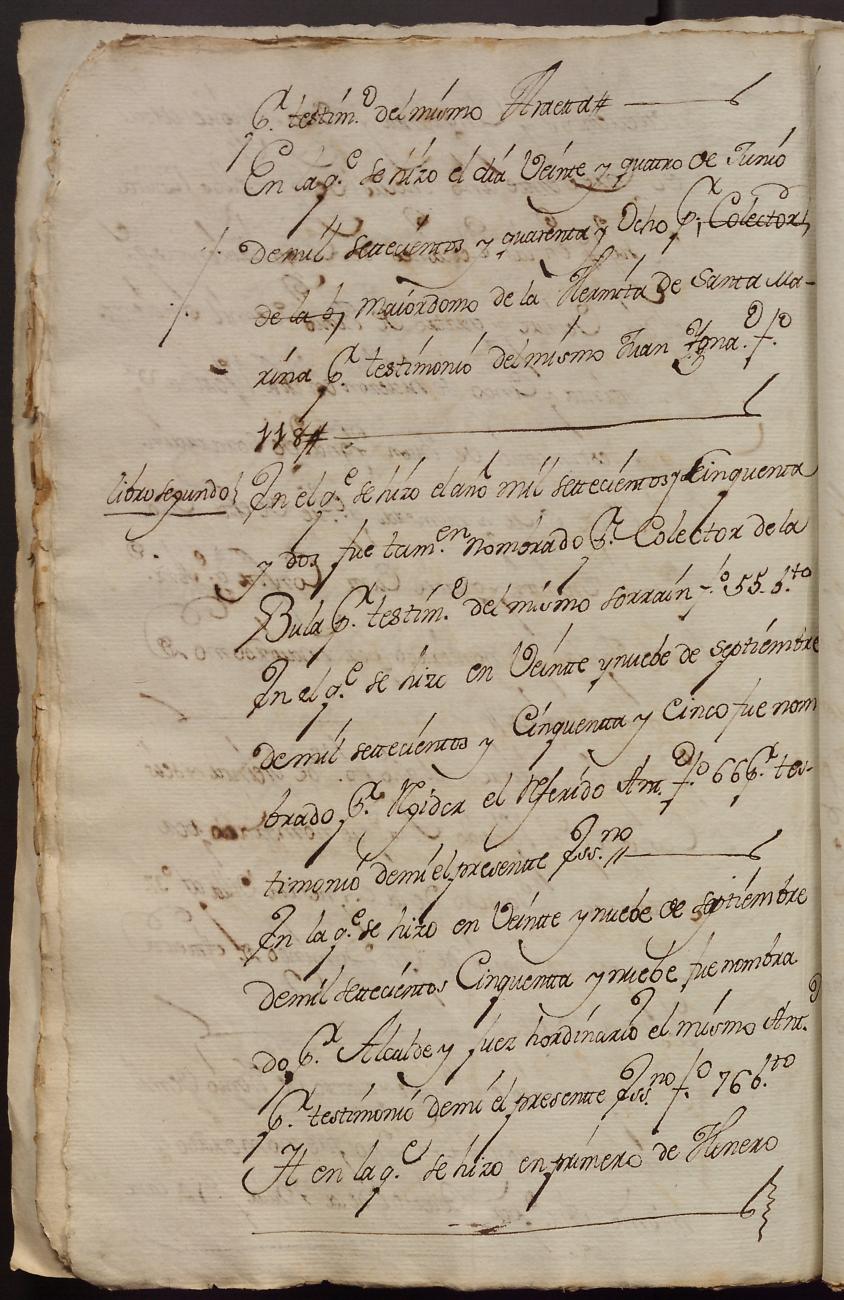 Pr. testim.º del mismo Araeta#
En la q.e se hizo el dia Veinte y quatro de Junio
de mil settecientos y quarenta y Ocho pr. Colector
de la b maiordomo de la Hermita de Santa Ma-
rina pr. testimonio del mismo Juan Igna.º f.º
118#
libro segundo
En el q.e se hizo el año mil settecientos y Cinquenta
y dos fue tam.en nombrado pr. Colector de la
Bula pr. testim.º del mismo sorrain f.º 55. b.to
En el q.e se hizo en Veinte y nuebe de septiembre
de mil settecientos y Cinquentta y Cinco fue nom
brado pr. Rejidor el Referido Ant.º f.º 66 pr. tes-
timonio de mi el presentte Ess.no
En la q.e se hizo en Veinte y nuebe de septiembre
de mil settecientos Cinquentta y nuebe fue nombra
do pr. Alcalde y Juez hordinario el mismo Ant.º
pr. testimonio de mi el presentte Ess.no f.º 76 b.to
Y en la q.e se hizo en primero de Henero